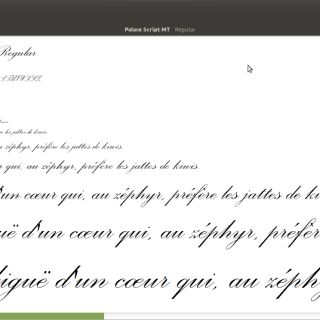 Palace Script MT Regular
Regular
les jattes de kiwis
zéphyr, préfère les jattes de kiwis.
qui, au zéphyr, préfère les jattes de kiwis.
d'un cœur qui, au zéphyr, préfère les jattes de
d'un cœur qui, au zéphyr,
d'un cœur qui, au